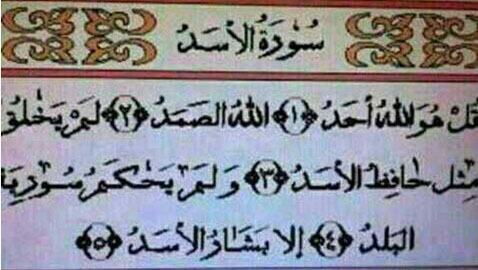 سُوْرَةُ الأَسَدُ
قُلْ هُوَ اللهُ أَحَدُ ﴿١﴾ اللهُ الصَمَدُ ﴿٢﴾ لَمْ يَخْلُقْ
مِثْلِ حَافِظُ الأَسَدُ ﴿٣﴾ وَلَمْ يَحْكَمُ سُورِيَة
البَلَدُ ﴿٤﴾ إلا بَشَارُ الأَسَدُ ﴿٥﴾